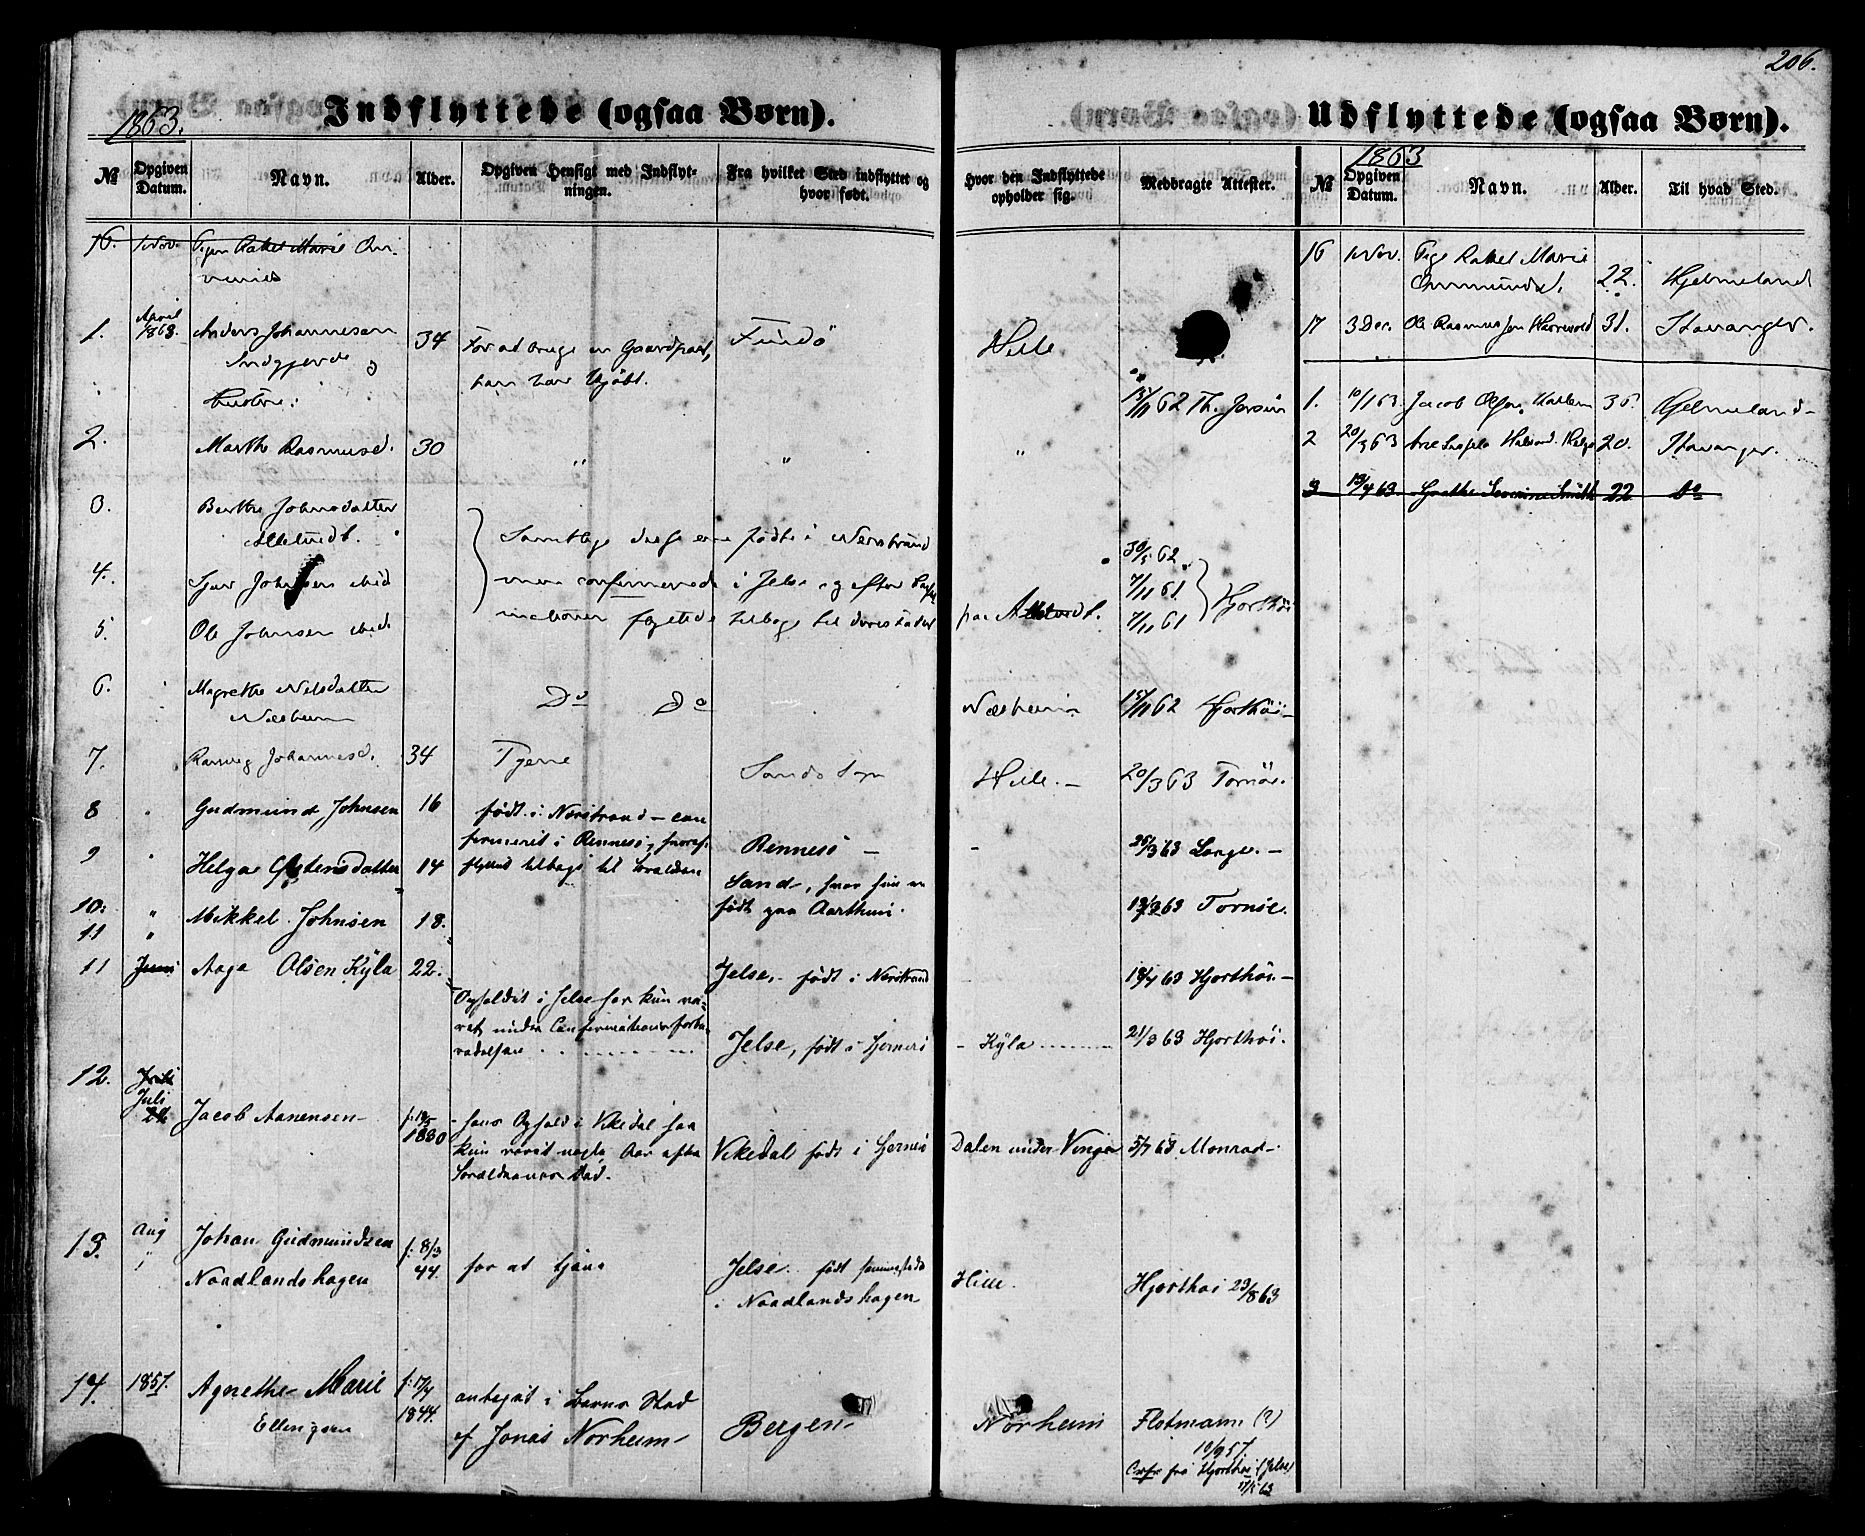 206.
Indflyttede (ogsaa Børn).
1863.
№
Opgiven Datum.
Navn.
Alder.
Opgiven Hensigt med Indflytningen.
Fra hvilket Sted indflyttet og hvor født.
Hvor den Indflyttede opholder sig.
Medbragte Attester.
16. 1 Nov. Pigen Rakel Marie Om-
1. April 1863. Anders Johannesen 34 For at bruge en Gaardpart, Findö Hille
han har kjöbt.
Hustru: 15/11 62 Th. Jersin
2. Marthe Rasmusd. 30 " " "
3. Berthe Johnsdatter
Samtlige disse ere födte i Nerstrand 30/5 62
4. Johnsen ibid men confirmerede i Jelse og efter 7/11 61 Hjorthöi
5. Ole Johnsen ibid. flyttede tilbage til paa 7/11 61
6. Magrethe Nilsdatter Do Do Næsheim 15/11 62 Hjorthöi
Næsheim
7. Johannesd. 34 Tjene Sands Sogn Hille. 20/3 63 Tornöe.
8 Gudmund Johnsen 16 født i Nerstrand – con
firmeret i Rennesö, Rennesö – 25/3 63 Lange. –
9 Helga Østensdatter 14 flyttet tilbage til Forældrene
Sand, hvor hun er
født paa Aarthun.
10. " Mikkel Johnsen 18. 63 Tornöe.
11 "
11 Juni Aage Olsen Kÿla 22. Jelse, født i Nerstrand 18/4 63 Hjorthöi. –
Opholdet i Jelse har kun væ-
ret under Confirmationsforbe-
redelsen Jelse, født i Hjernerö – Kÿla 21/3 63 Hjorthöi.
12. Juli Jacob Aanensen f: 1830 hans Ophold i Vikedal har
kun været nogle Aar efter Vikedal født i Hjernerö Dalen under Vinge 5/7 63 Monrad
Forældrenes Død.
13. Aug Johan Gudmundsen f: 8/3 44. for at tjene Jelse. født sammesteds Hille. Hjorthöi 23/8 63
Naadlandshagen i Naadlandshagen
14. 1857. Agnethe Marie f: 17/4 1844. antaget i Barns Sted Bergen Norheim Flotmann (?)
Ellingsen af Jonas Norheim 10/9 57.
Conf. fra Hjorthöi (Jelse)
63
Udflyttede (ogsaa Børn).
1863
№
Opgiven Datum.
Navn.
Alder.
Til hvad Sted.
16 1 Nov. Pige Rakel Marie
Ommundsd. 22. Hjelmeland
17 3 Dec. Ole Rasmussen 31. Stavanger.
1. 10/1 63. Jacob Olsen 36. Hjelmeland
2 20/3 63 Halvord. 20. Stavanger.
3 13/4 63. Grethe Severine Smith 22 Do